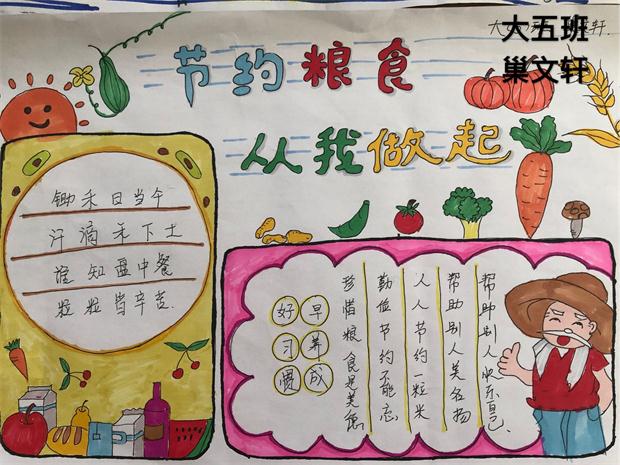 大五班
巢文轩
节约粮食
从我做起
锄禾日当午
汗滴禾下土
谁知盘中餐
粒粒皆辛苦.
早养成
好习惯
珍惜粮食是美德
勤俭节约不能忘
人人节约一粒米
帮助别人美名扬
帮助别人快乐自己.